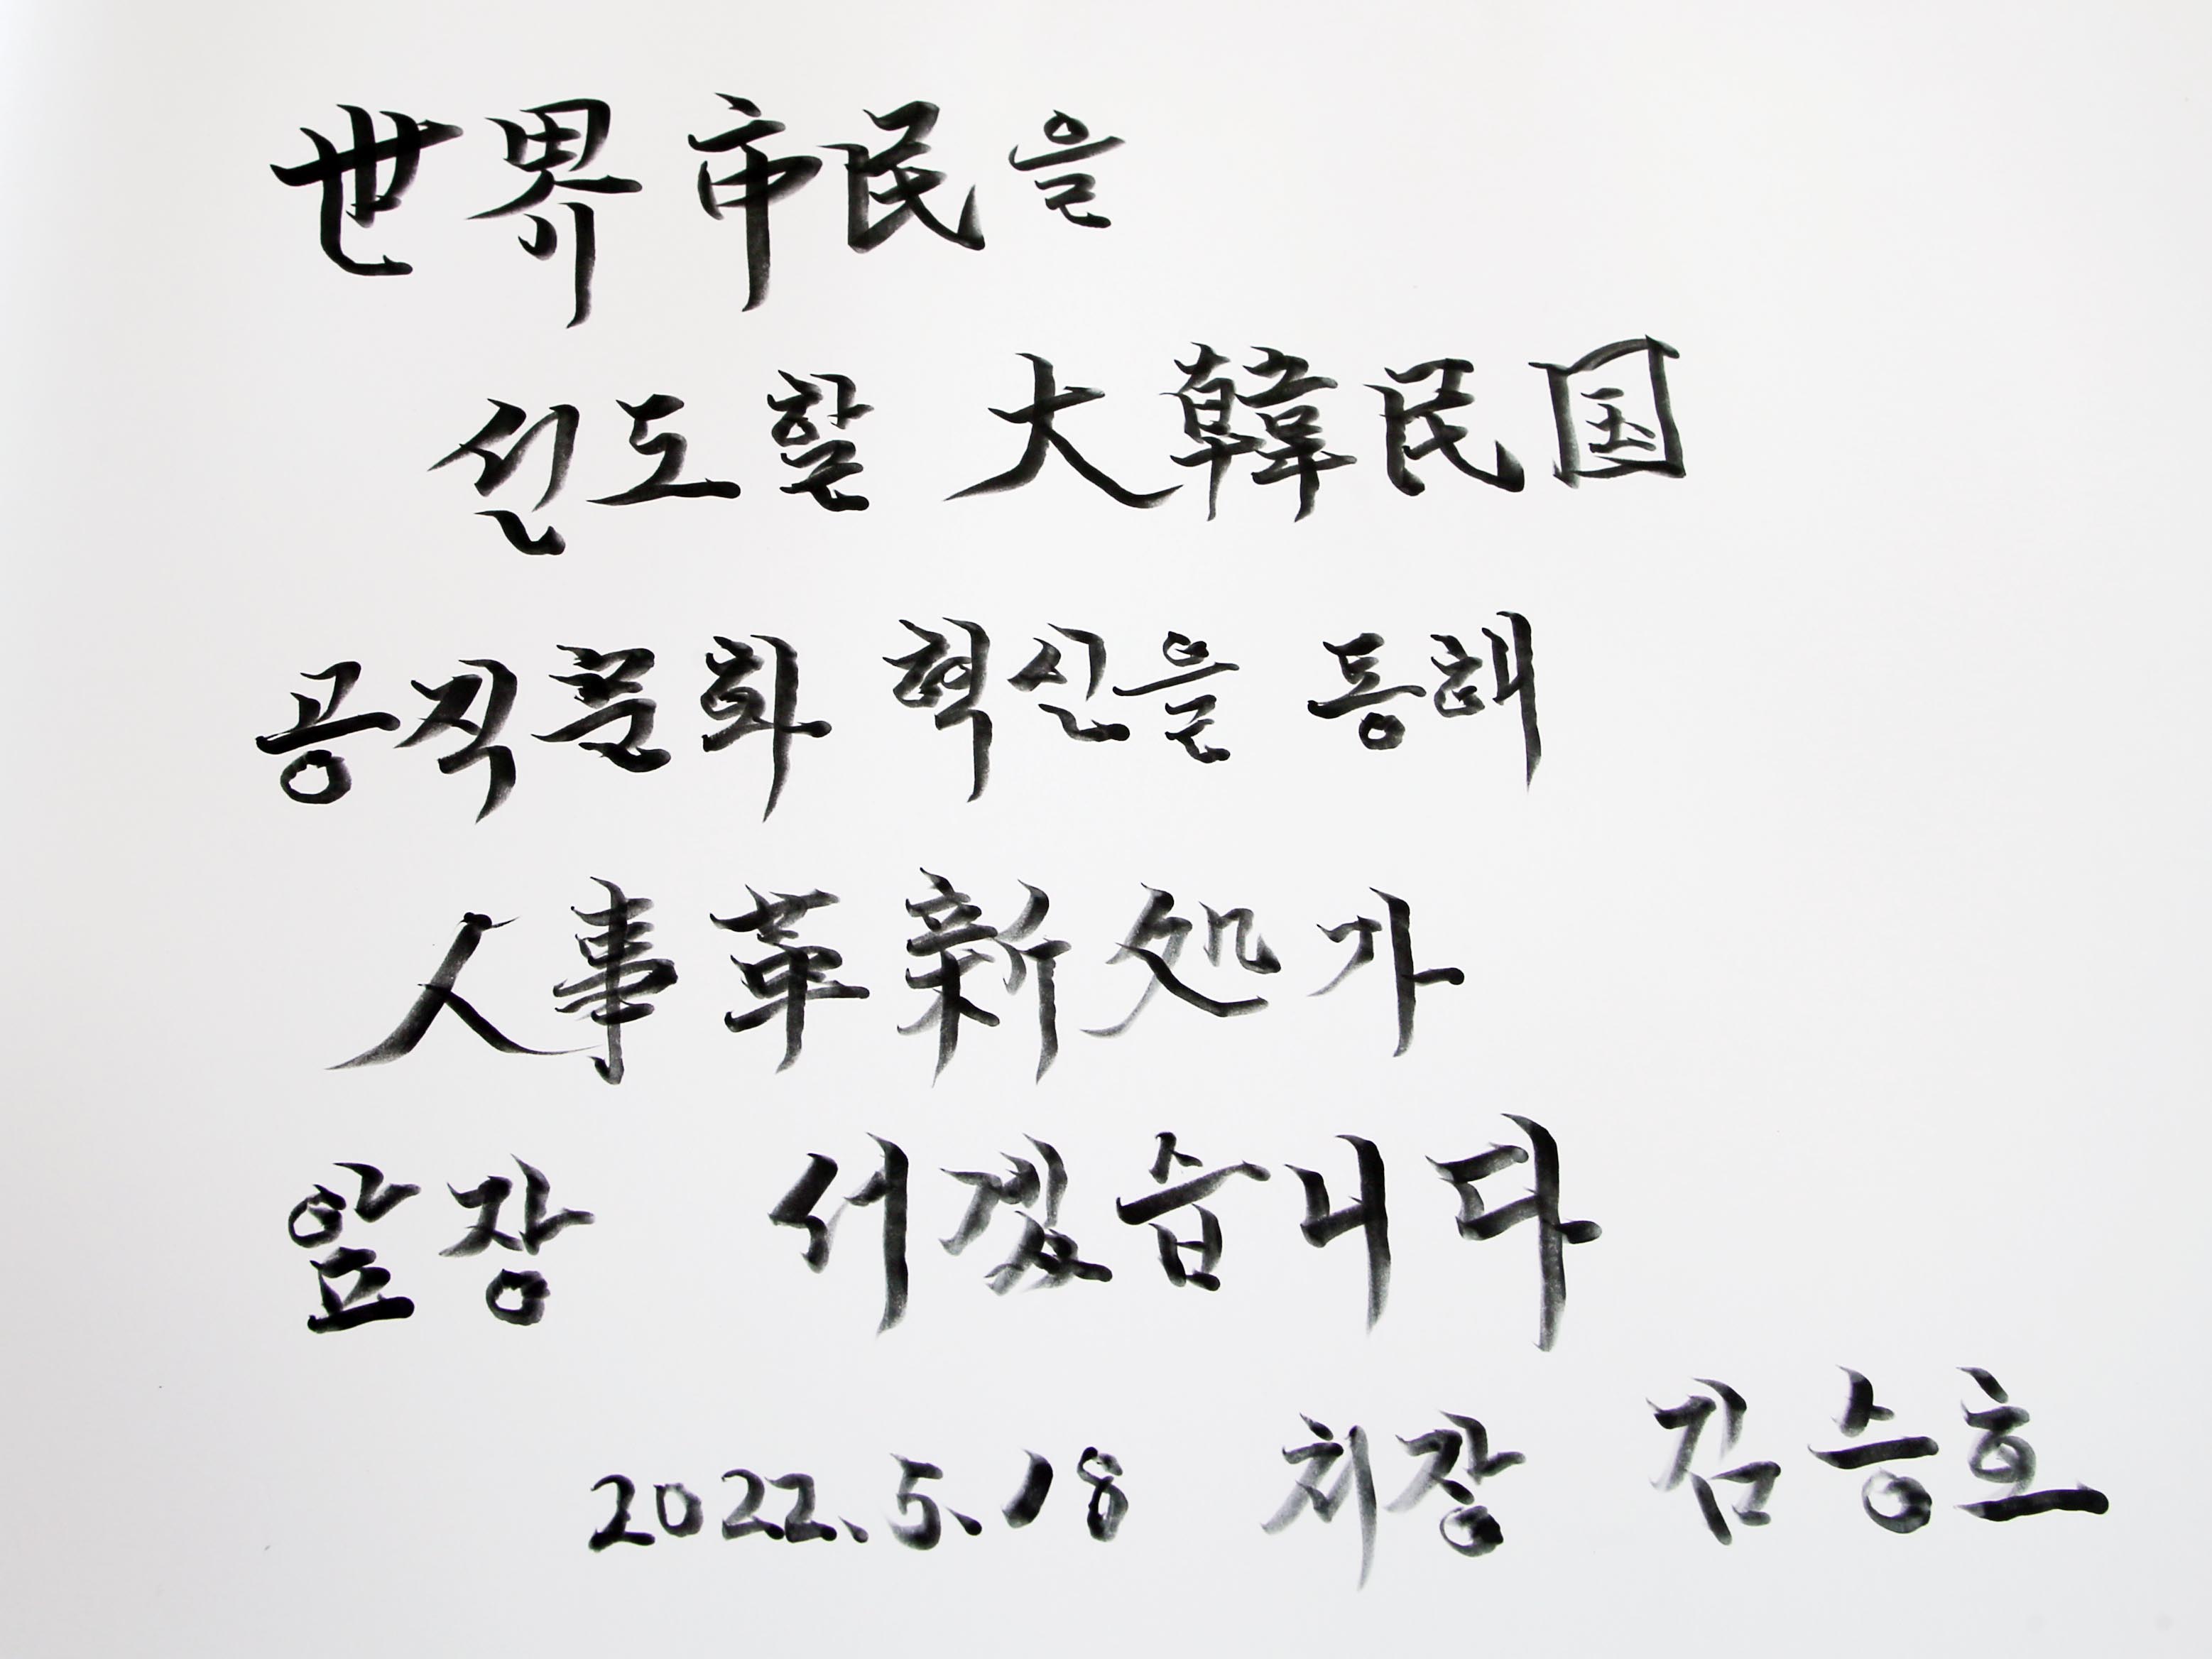 世界 市民을
선도할 大韓民国
공직문화 혁신을 통해
人事革新処가
앞장 서겠습니다
2022.5.18 처장 김승호